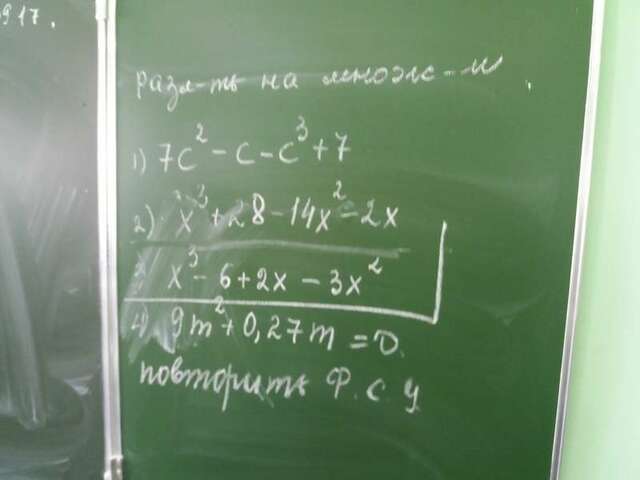 917.
разл-ть на множ-и
1) 7c² - c - c³ + 7
2) x³ + 28 - 14x² - 2x
3) x³ - 6 + 2x - 3x²
4) 9m² + 0,27m = 0.
повторить Ф.С.У